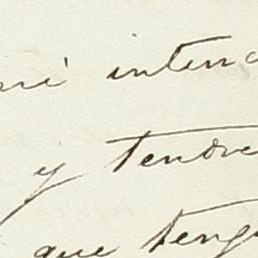 mi inten
y tendre
que teng